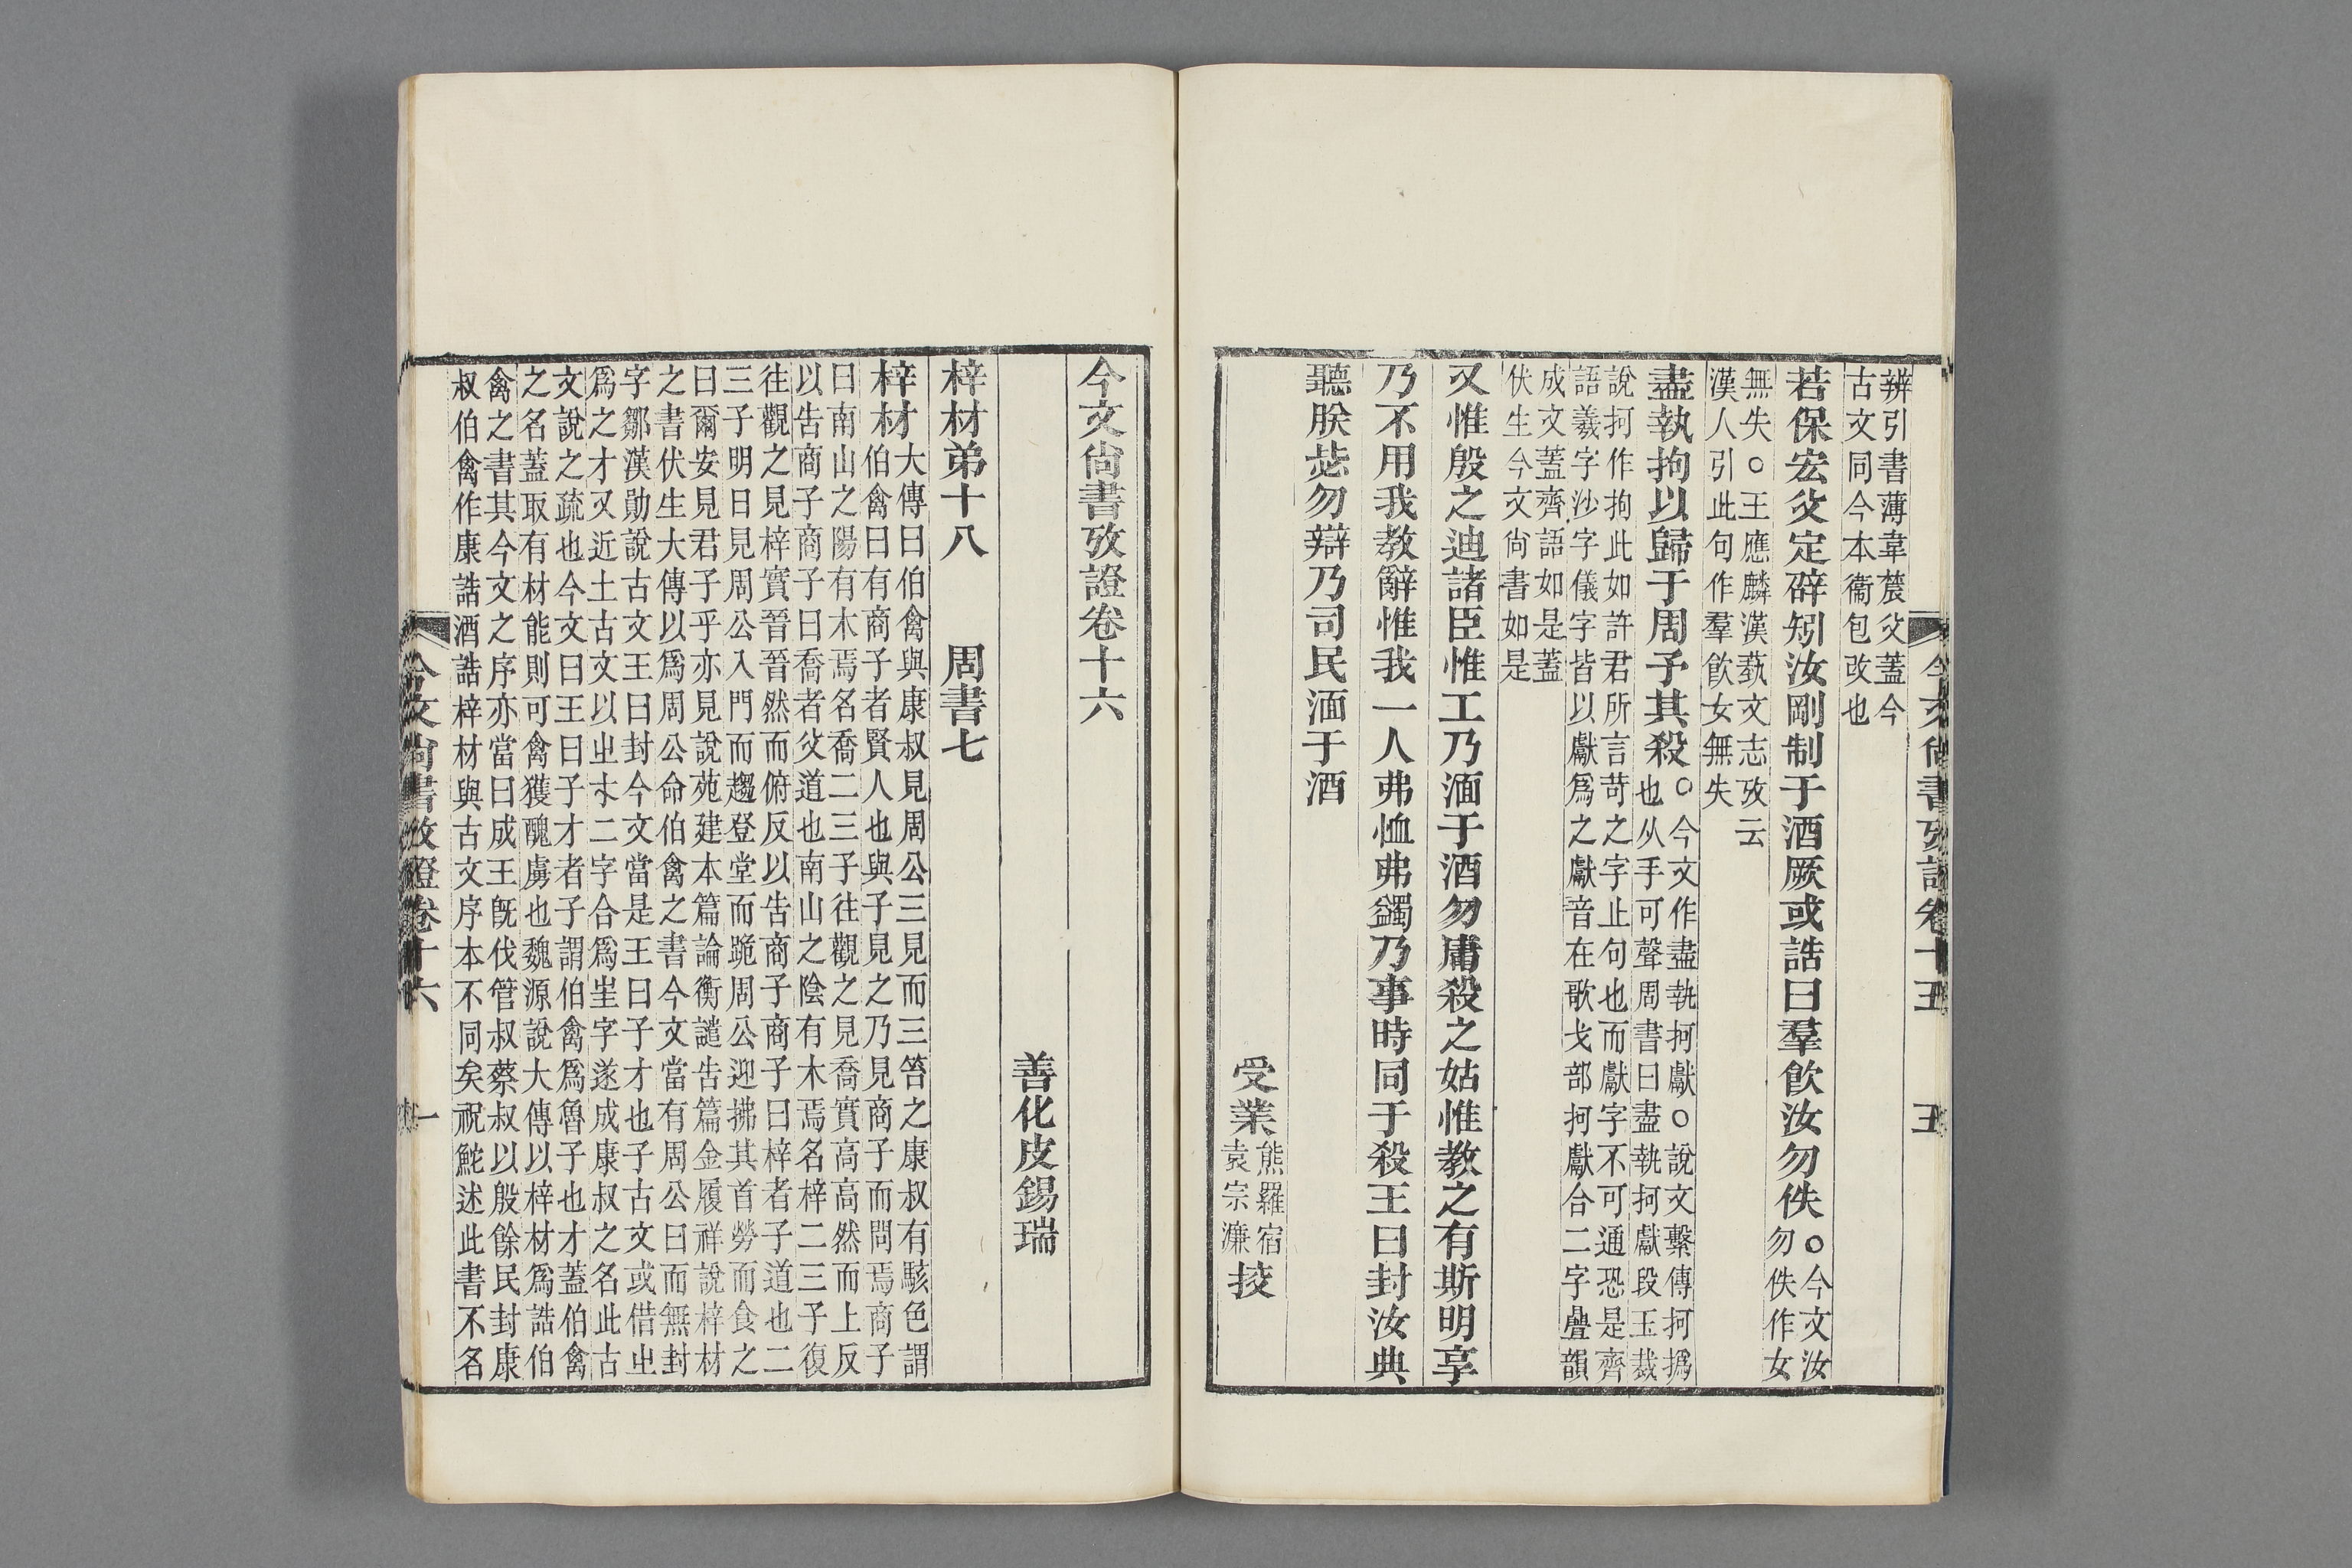 辨引書薄韋辳父蓋今
古文同今本衞包改也
若保宏父定辟矧汝剛制于酒厥或誥曰羣飮汝勿佚○今文汝
勿佚作女
無失○王應麟漢蓺文志攷云
漢人引此句作羣飮女無失
盡執拘以歸于周予其殺○今文作盡執抲獻○說文繫傳抲撝
也从手可聲周書曰盡執抲獻段玉裁
說抲作拘此如許君所言苛之字止句也而獻字不可通恐是齊
語羲字沙字儀字皆以獻爲之獻音在歌戈部抲獻合二字疊韻
成文蓋齊語如是蓋
伏生今文尙書如是
又惟殷之迪諸臣惟工乃湎于酒勿庸殺之姑惟教之有斯明享
乃不用我教辭惟我一人弗恤弗蠲乃事時同于殺王曰封汝典
聽朕毖勿辯乃司民湎于酒
受業熊羅宿袁宗濂挍
今文尙書攷證卷十五
五
今文尙書攷證卷十六
善化皮錫瑞
梓材弟十八 周書七
梓材大傳曰伯禽與康叔見周公三見而三笞之康叔有駭色謂
伯禽曰有商子者賢人也與子見之乃見商子而問焉商子
曰南山之陽有木焉名喬二三子往觀之見喬實高高然而上反
以告商子商子曰喬者父道也南山之陰有木焉名梓二三子復
往觀之見梓實晉晉然而俯反以告商子商子曰梓者子道也二
三子明日見周公入門而趨登堂而跪周公迎拂其首勞而食之
曰爾安見君子乎亦見說苑建本篇論衡譴告篇金履祥說梓材
之書伏生大傳以爲周公命伯禽之書今文當有周公曰而無封
字鄒漢勛說古文王曰封今文當是王曰子才也子古文或借㞢
爲之才又近土古文以㞢木二字合爲㞷字遂成康叔之名此古
文說之疏也今文曰王曰子才者子謂伯禽爲魯子也才蓋伯禽
之名蓋取有材能則可禽獲醜虜也魏源說大傳以梓材爲誥伯
禽之書其今文之序亦當曰成王旣伐管叔蔡叔以殷餘民封康
叔伯禽作康誥酒誥梓材與古文序本不同矣祝鮀述此書不名
今文尙書攷證卷十六
一